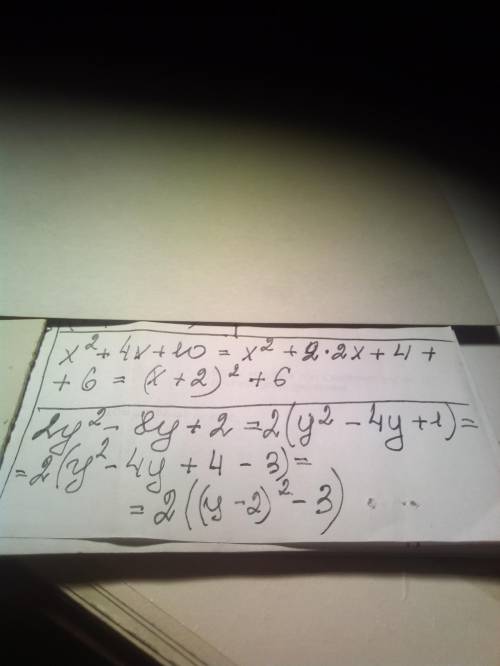 x² + 4x + 10 = x² + 2·2x + 4 +
+ 6 = (x + 2)² + 6
2y² - 8y + 2 = 2(y² - 4y + 1) =
= 2(y² - 4y + 4 - 3) =
= 2((y - 2)² - 3)